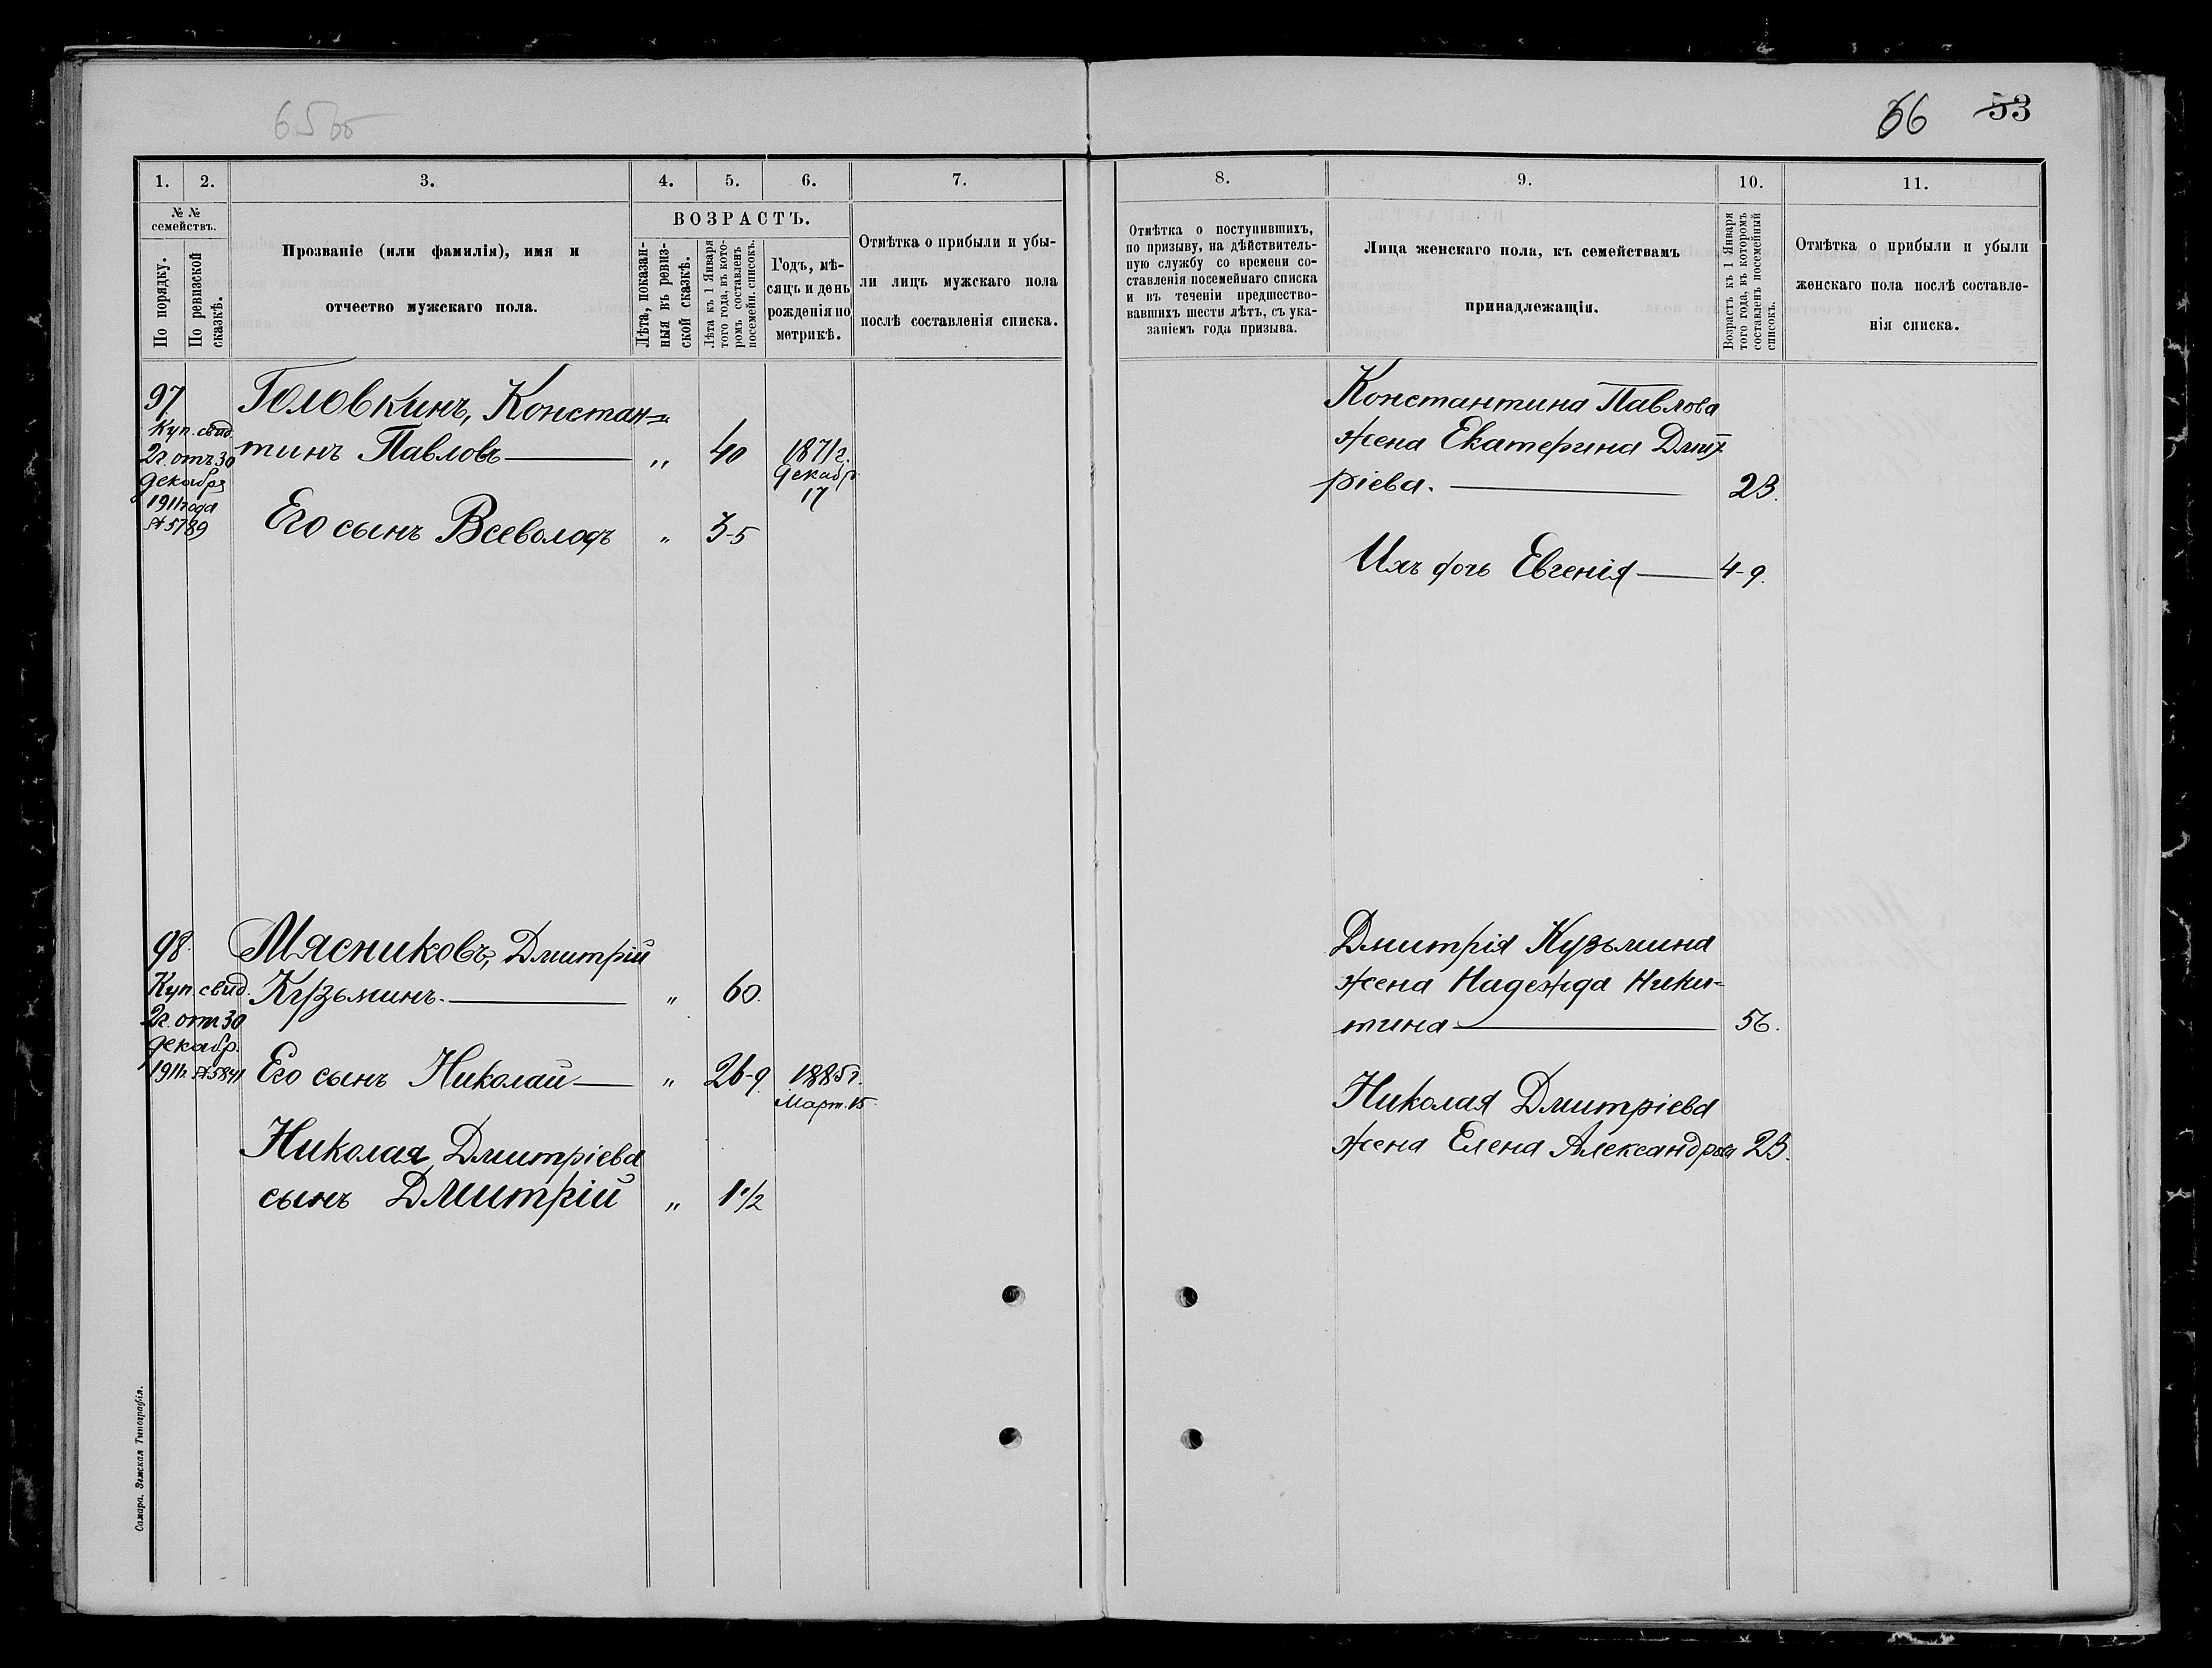 65об
66 53
1. 2. 3. 4. 5. 6. 7.
№ №
семействъ.
По порядку.
По ревизской
сказкѣ.
Прозваніе (или фамилія), имя и
отчество мужскаго пола.
ВОЗРАСТЪ.
Лѣта, показан-
ныя въ ревиз-
ской сказкѣ.
Лѣта къ 1 Января
того года, въ кото-
ромъ составленъ
посемейн. списокъ.
Годъ, мѣ-
сяцъ и день
рожденія по
метрикѣ.
Отмѣтка о прибыли и убы-
ли лицъ мужскаго пола
послѣ составленія списка.
97
Куп. свид.
2г. отъ 30
декабря
1911 года
№ 5789
Головкинъ, Констан-
тинъ Павловъ — „ 40 1871г.
декабр.
17
Его сынъ Всеволодъ „ 3-5
98.
Куп. свид.
2г. отъ 30
декабр.
1911г. № 5841
Мясниковъ, Дмитрій
Кузьминъ. — „ 60.
Его сынъ Николай — „ 26-9. 1885г.
Март. 15.
Николая Дмитріева
сынъ Дмитрій „ 1 1/2
Самара. Земская Типографія.
8. 9. 10. 11.
Отмѣтка о поступившихъ,
по призыву, на дѣйствитель-
ную службу со времени со-
ставленія посемейнаго списка
и въ теченіи предшество-
вавшихъ шести лѣтъ, съ ука-
заніемъ года призыва.
Лица женскаго пола, къ семействамъ
принадлежащія.
Возрастъ къ 1 Января
того года, въ которомъ
составленъ посемейный
списокъ.
Отмѣтка о прибыли и убыли
женскаго пола послѣ составле-
нія списка.
Константина Павлова
жена Екатерина Дмит-
ріева. — 23.
Ихъ дочь Евгенія — 4-9.
Дмитрія Кузьмина
жена Надежда Ники-
тина — 56.
Николая Дмитріева
жена Елена Александрова 23.